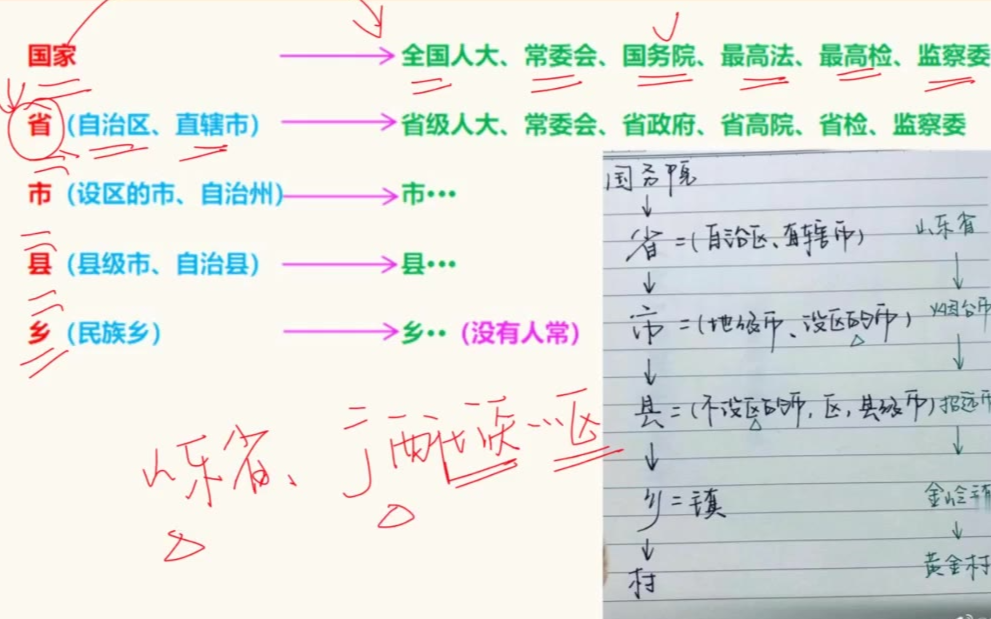 国家 → 全国人大、常委会、国务院、最高法、最高检、监察委
省（自治区、直辖市） → 省级人大、常委会、省政府、省高院、省检、监察委
市（设区的市、自治州） → 市···
县（县级市、自治县） → 县···
乡（民族乡） → 乡··（没有人常）
山东省、广西壮族…区
国务院
↓
省=(自治区、直辖市) 山东省
↓ ↓
市=(地级市、设区的市) 烟台市
↓ ↓
县=(不设区的市,区,县级市) 招远市
↓ ↓
乡=镇 金岭镇
↓ ↓
村 黄金村